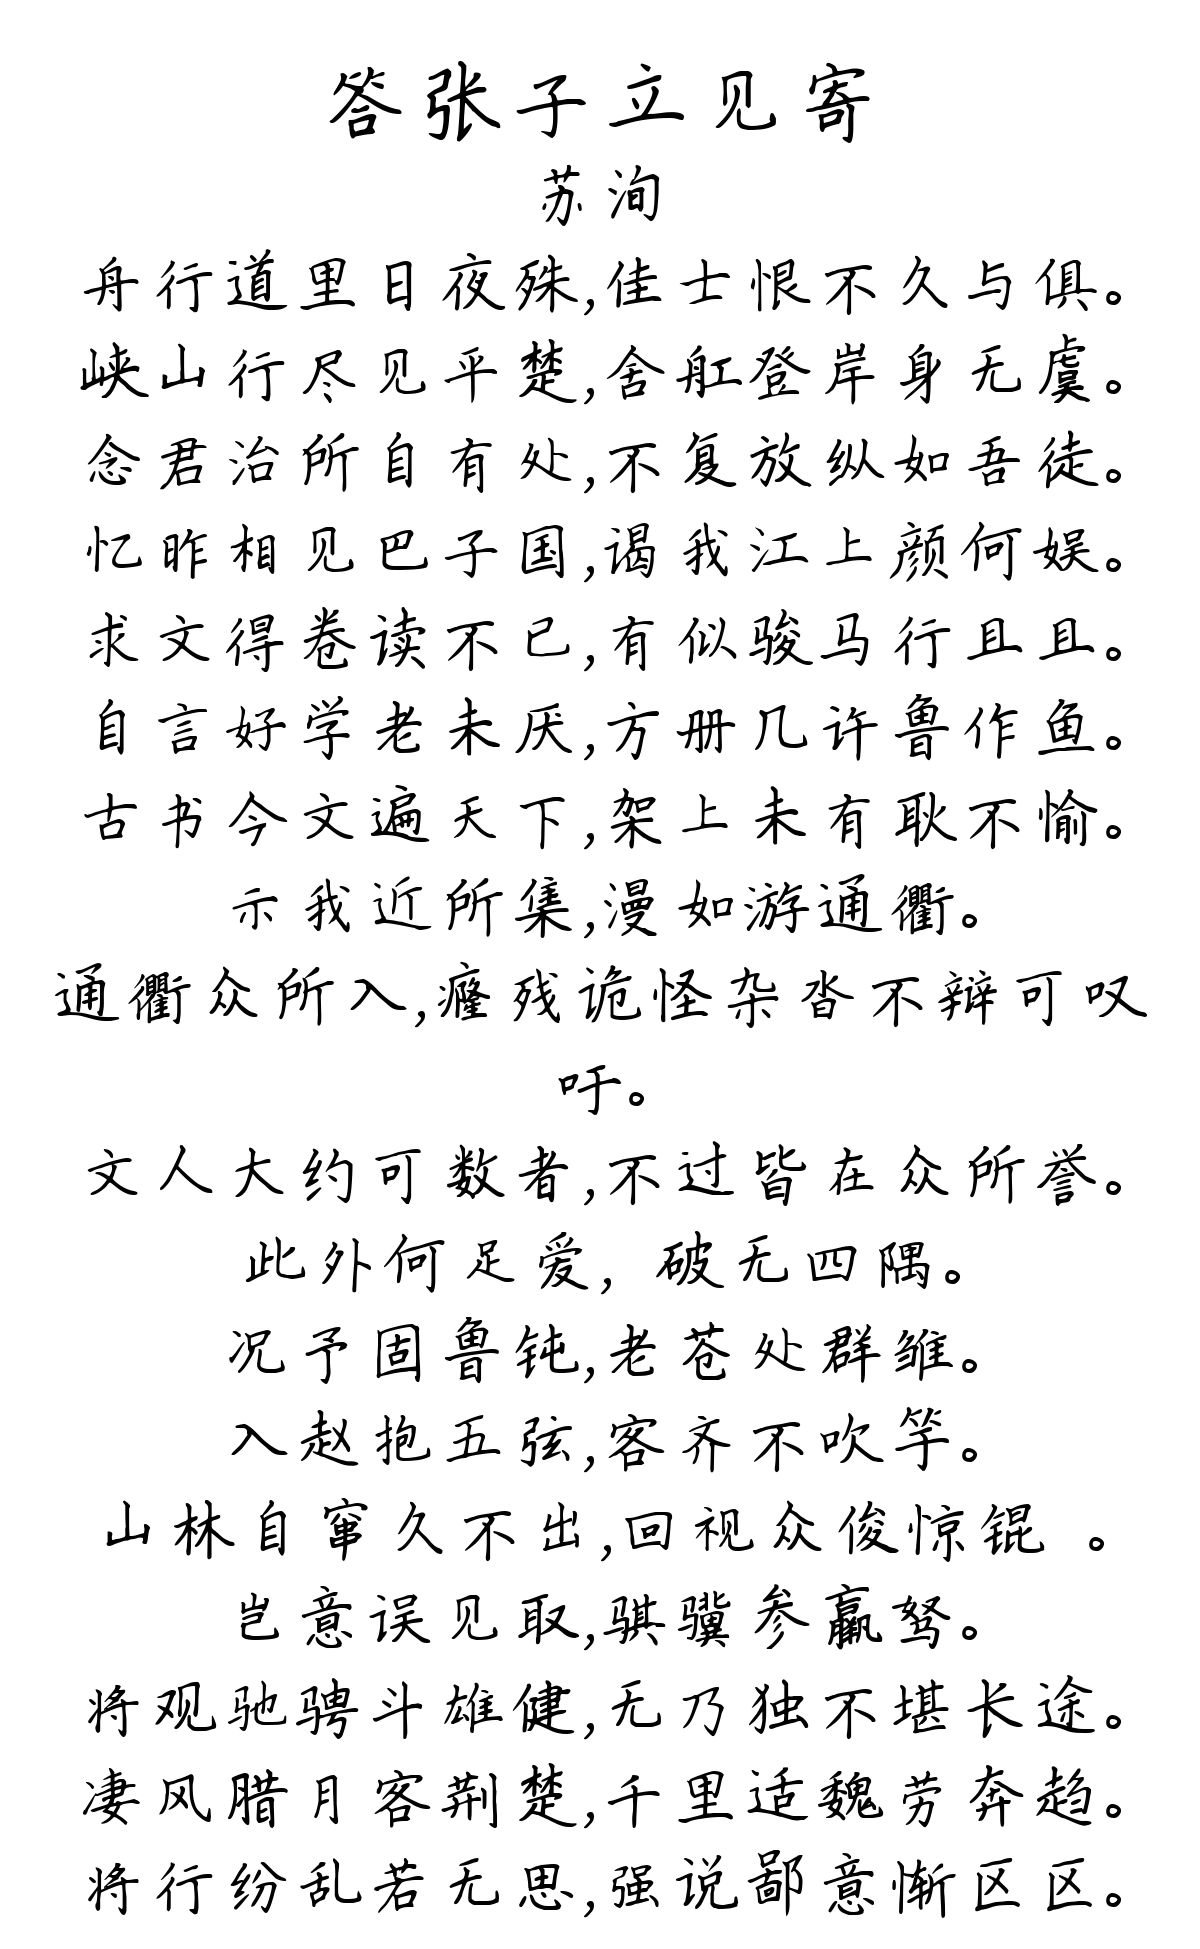 答张子立见寄
苏洵
舟行道里日夜殊,佳士恨不久与俱。
峡山行尽见平楚,舍舡登岸身无虞。
念君治所自有处,不复放纵如吾徒。
忆昨相见巴子国,谒我江上颜何娱。
求文得卷读不已,有似骏马行且且。
自言好学老未厌,方册几许鲁作鱼。
古书今文遍天下,架上未有耿不愉。
示我近所集,漫如游通衢。
通衢众所入,癃残诡怪杂沓不辩可叹
吁。
文人大约可数者,不过皆在众所誉。
此外何足爱，破无四隅。
况予固鲁钝,老苍处群雏。
入赵抱五弦,客齐不吹竽。
山林自窜久不出,回视众俊惊锟 。
岂意误见取,骐骥参羸驽。
将观驰骋斗雄健,无乃独不堪长途。
凄风腊月客荆楚,千里适魏劳奔趋。
将行纷乱若无思,强说鄙意惭区区。